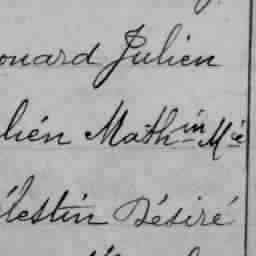 onard Julien
lien Mathin Mie
élestin Désiré